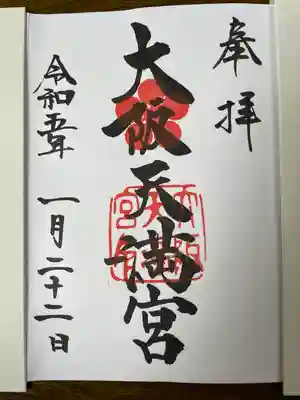 奉拝
大阪天満宮
令和五年 一月二十二日